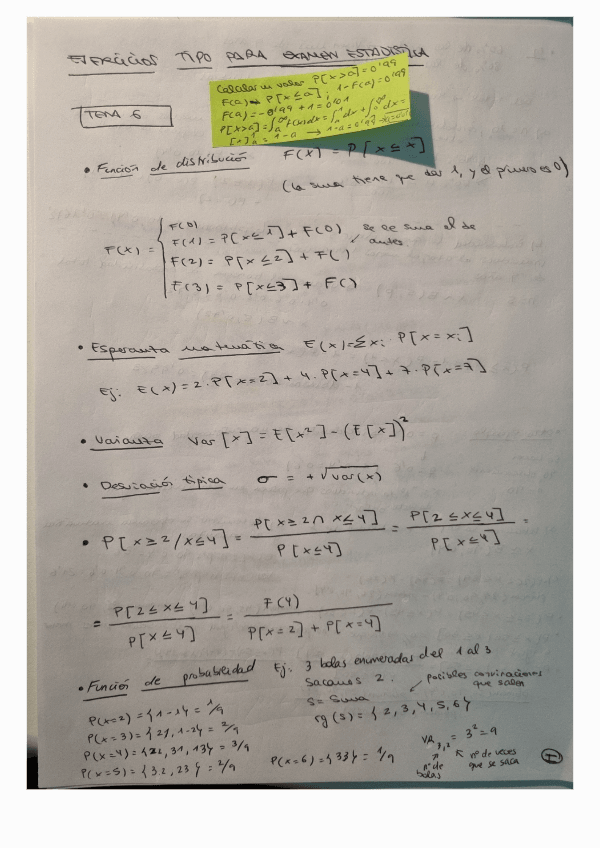 EJERCICIOS TIPO PARA EXAMEN ESTADISTICA
Calcular un valor P[x>a]=0'99
F(a) P[x≤a]; 1-F(a)=0'99
F(a)=-0'99+1=0'01
P[x>a]=∫
= 1-a → 1-a=0'99
TEMA 6
• Función de distribución F(x) = P[X≤x]
(la suma tiene que dar 1, y el primero es 0)
F(0)
F(1) = P[x≤1]+F(0) se le suma el de
F(x) = antes
F(2) = P[x≤2] + F()
F(3) = P[x≤3] + F()
• Esperanza matemática E(x)=Σxi P[x=xi]
Ej: E(x)=2·P[x=2]+4·P[x=4]+7·P[x=7]
• Varianza Var[x]=E[x²]-(E[x])²
• Desviación típica σ = +√var(x)
• P[x≥2/x≤4] = P[x≥2∩x≤4] / P[x≤4] = P[2≤x≤4] / P[x≤4] =
= P[2≤x≤4] / P[x≤4] = F(4) / P[x=2]+P[x=4]
• Función de probabilidad Ej: 3 bolas enumeradas del 1 al 3
Sacamos 2. posibles
que salen
S=Suma
rg(s)={2,3,4,5,6}
P(x=2)={1-1}=1/9
P(x=3)={21,1-2}=2/9
P(x=4)={22,31,13}=3/9
P(x=5)={32,23}=2/9
P(x=6)={33}=1/9
VR3,2 = 3²=9
nº de bolas
nº de veces que se saca
I